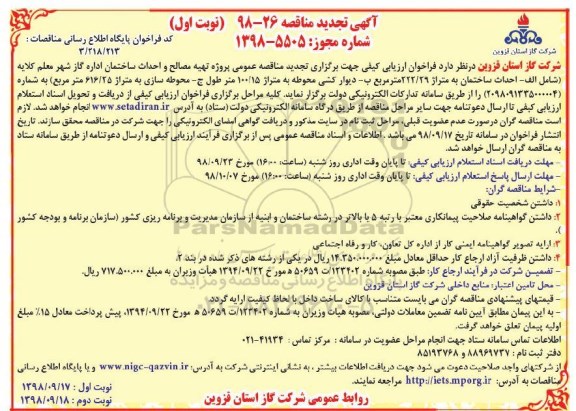 آگهی تجدید مناقصه ۲۶-۹۸ (نوبت اول)
شماره مجوز: ۵۵۰۵-۱۳۹۸
کد فراخوان پایگاه اطلاع رسانی مناقصات :
۳/۲۱۸/۲۱۳
شرکت گاز استان قزوین
شرکت گاز استان قزوین درنظر دارد فراخوان ارزیابی کیفی جهت برگزاری تجدید مناقصه عمومی پروژه تهیه مصالح و احداث ساختمان اداره گاز شهر معلم کلایه
(شامل الف- احداث ساختمان به متراژ ۲۲۲/۲۹مترمربع ب- دیوار کشی محوطه به متراژ ۱۰۰/۱۵ متر طول ج- محوطه سازی به متراژ ۶۱۶/۲۵ متر مربع) به شماره
(۲۰۹۸۰۹۱۳۳۵۰۰۰۰۰۴) را از طریق سامانه تدارکات الکترونیکی دولت برگزار نمایند. کلیه مراحل برگزاری فراخوان ارزیابی کیفی از دریافت و تحویل اسناد استعلام
ارزیابی کیفی تا ارسال دعوتنامه جهت سایر مراحل مناقصه از طریق درگاه سامانه الکترونیکی دولت (ستاد) به آدرس www.setadiran.ir انجام خواهد شد. لازم
است مناقصه گران درصورت عدم عضویت قبلی، مراحل ثبت نام در سایت مذکور و دریافت گواهی امضای الکترونیکی را جهت شرکت در مناقصه محقق سازند. تاریخ
انتشار فراخوان در سامانه تاریخ ۹۸/۰۹/۱۷ می باشد. اطلاعات و اسناد مناقصه عمومی پس از برگزاری فرآیند ارزیابی کیفی و ارسال دعوتنامه از طریق سامانه ستاد
به مناقصه گران ارسال خواهد شد.
- مهلت دریافت اسناد استعلام ارزیابی کیفی: تا پایان وقت اداری روز شنبه (ساعت: ۱۶:۰۰) مورخ ۹۸/۰۹/۲۳
- مهلت ارسال پاسخ استعلام ارزیابی کیفی: تا پایان وقت اداری روز شنبه (ساعت: ۱۶:۰۰) مورخ ۹۸/۱۰/۰۷
-شرایط مناقصه گران:
۱: داشتن شخصیت حقوقی
۲: داشتن گواهینامه صلاحیت پیمانکاری معتبر با رتبه ۵ یا بالاتر در رشته ساختمان و ابنیه از سازمان مدیریت و برنامه ریزی کشور (سازمان برنامه و بودجه کشور
).
۳: ارایه تصویر گواهینامه ایمنی کار از اداره کل تعاون، کار و رفاه اجتماعی
۴: داشتن ظرفیت آزاد ارجاع کار حداقل معادل مبلغ ۱۴.۳۵۰.۰۰۰.۰۰۰ ریال در یکی از رشته های ذکر شده در بند ۲.
- تضمین شرکت در فرآیند ارجاع کار: طبق مصوبه شماره ۱۲۳۴۰۲/ت ۵۰۶۵۹ ه مورخ ۱۳۹۴/۰۹/۲۲ هیأت وزیران به مبلغ ۷۱۷.۵۰۰.۰۰۰ ریال.
- محل تامین اعتبار: منابع داخلی شرکت گاز استان قزوین
- قیمتهای پیشنهادی مناقصه گران می بایست متناسب با کالای ساخت داخل با لحاظ کیفیت ارایه گردد.
- به این پیمان مطابق آیین نامه تضمین معاملات دولتی، مصوبه هیأت وزیران به شماره ۱۲۳۴۰۲/ت ۵۰۶۵۹ ه مورخ ۱۳۹۴/۰۹/۲۲، پیش پرداخت معادل ۱۵٪ مبلغ
اولیه پیمان تعلق خواهد گرفت.
اطلاعات تماس سامانه ستاد جهت انجام مراحل عضویت در سامانه : مرکز تماس : ۴۱۹۳۴-۰۲۱
دفتر ثبت نام : ۸۸۹۶۹۷۳۷ و ۸۵۱۹۳۷۶۸
از شرکتهای واجد صلاحیت دعوت می شود جهت دریافت اطلاعات بیشتر ، به نشانی اینترنتی شرکت به آدرس: www.nigc-qazvin.ir و یا پایگاه اطلاع رسانی
مناقصات به آدرس: http://iets.mporg.ir مراجعه نمایند.
نوبت اول : ۱۳۹۸/۰۹/۱۷
نوبت دوم : ۱۳۹۸/۰۹/۱۸
روابط عمومی شرکت گاز استان قزوین
ParsNamadData